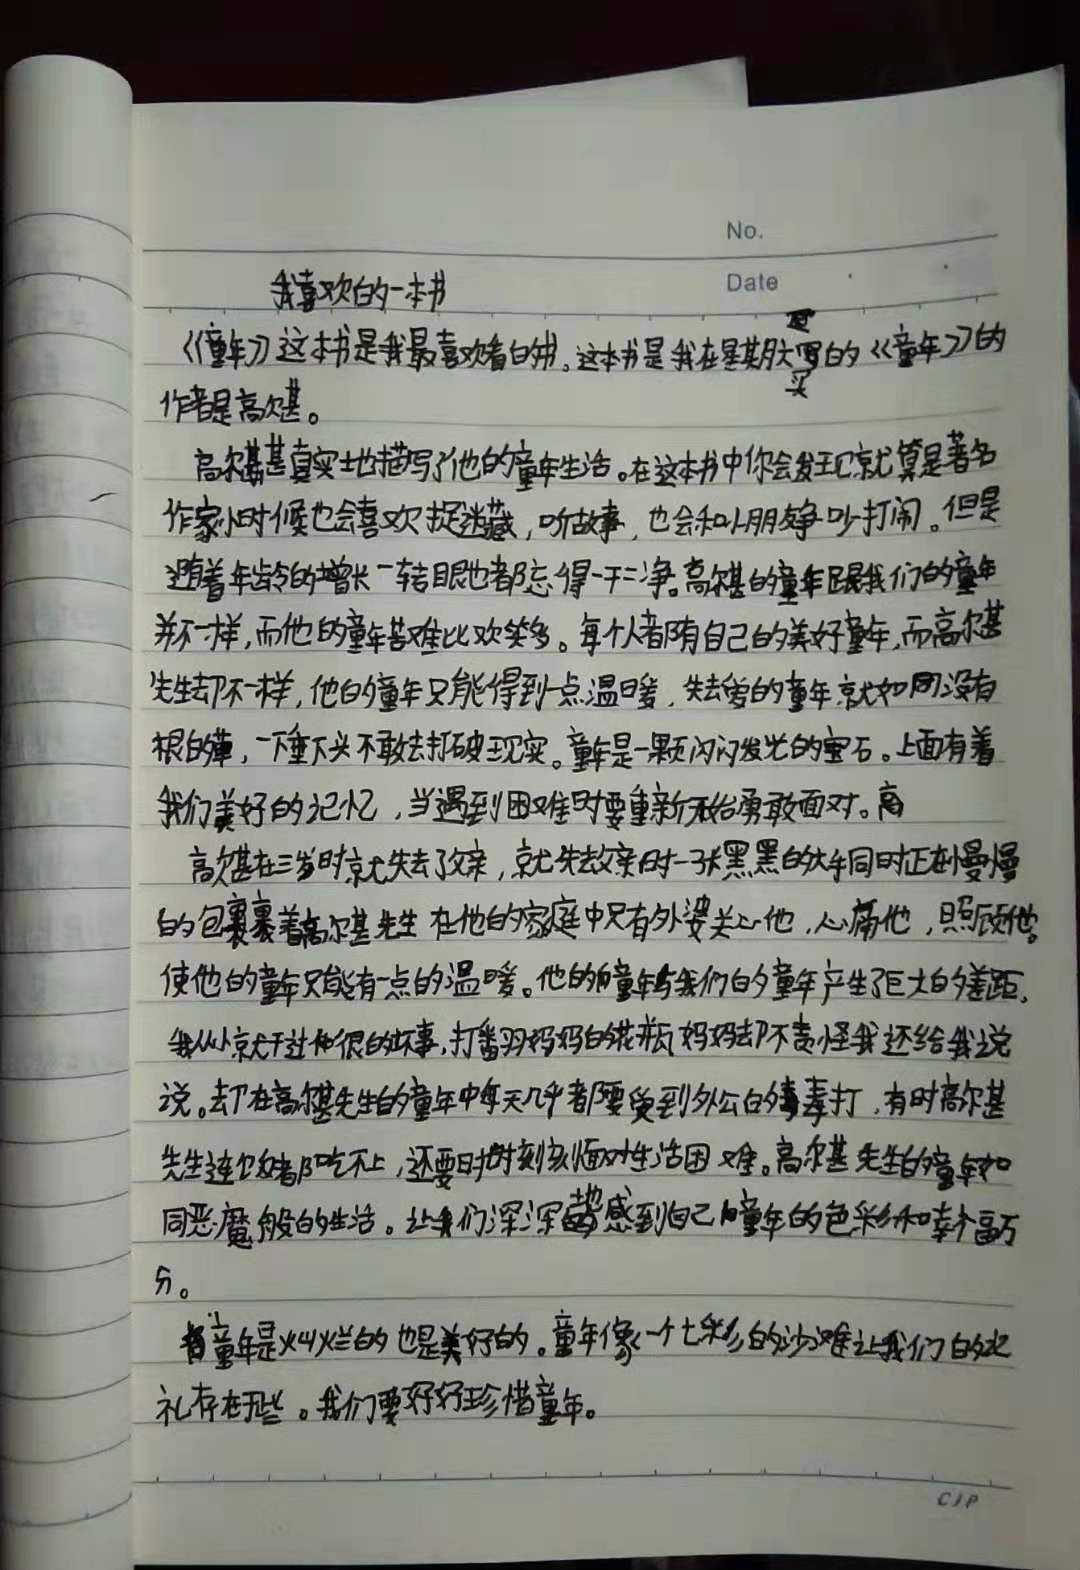 No.
Date
我喜欢的一本书
《童年》这本书是我最喜欢看的书。这本书是我在星期六买的《童年》的
作者是高尔基。
高尔基真实地描写了他的童年生活。在这本书中你会发现就算是著名
作家小时候也会喜欢捉迷藏，听故事，也会和小朋友争吵打闹。但是
随着年龄的增长一转眼也都忘得一干二净。高尔基的童年跟我们的童年
并不一样，而他的童年苦难比欢笑多。每个人都有自己的美好童年，而高尔基
先生却不一样，他的童年只能得到一点温暖，失去爱的童年就如同没有
根的草，一下垂下头不敢去打破现实。童年是一颗闪闪发光的宝石。上面有着
我们美好的记忆，当遇到困难时要重新开始勇敢面对。高
高尔基在三岁时就失去了父亲，就失去父亲时一张黑黑的大手同时正在慢慢
的包裹着高尔基先生 在他的家庭中只有外婆关心他，心痛他，照顾他。
使他的童年只能有一点的温暖。他的童年与我们的童年产生了巨大的差距，
我从小就干过很的坏事，打番羽妈妈的花瓶 妈妈却不责怪我还给我说
说。却在高尔基先生的童年中每天几乎都要受到外公的毒打，有时高尔基
先生连饭都吃不上，还要时时刻刻面对生活困难。高尔基先生的童年如
同恶魔般的生活。让我们深深地感到自己童年的色彩和幸福万
分。
童年是灿烂的也是美好的。童年像一个七彩的沙滩让我们的
礼存在那些。我们要好好珍惜童年。
CJP